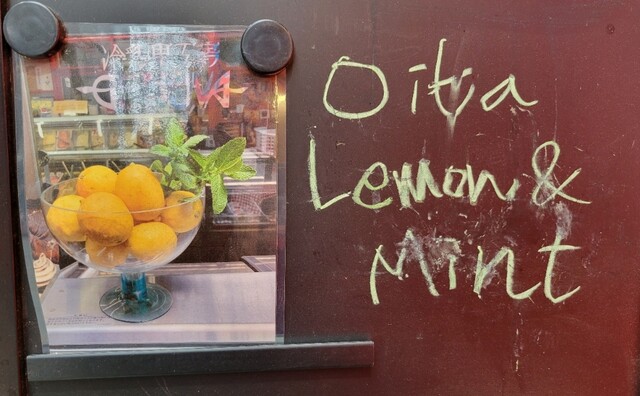 Oita
Lemon &
Mint